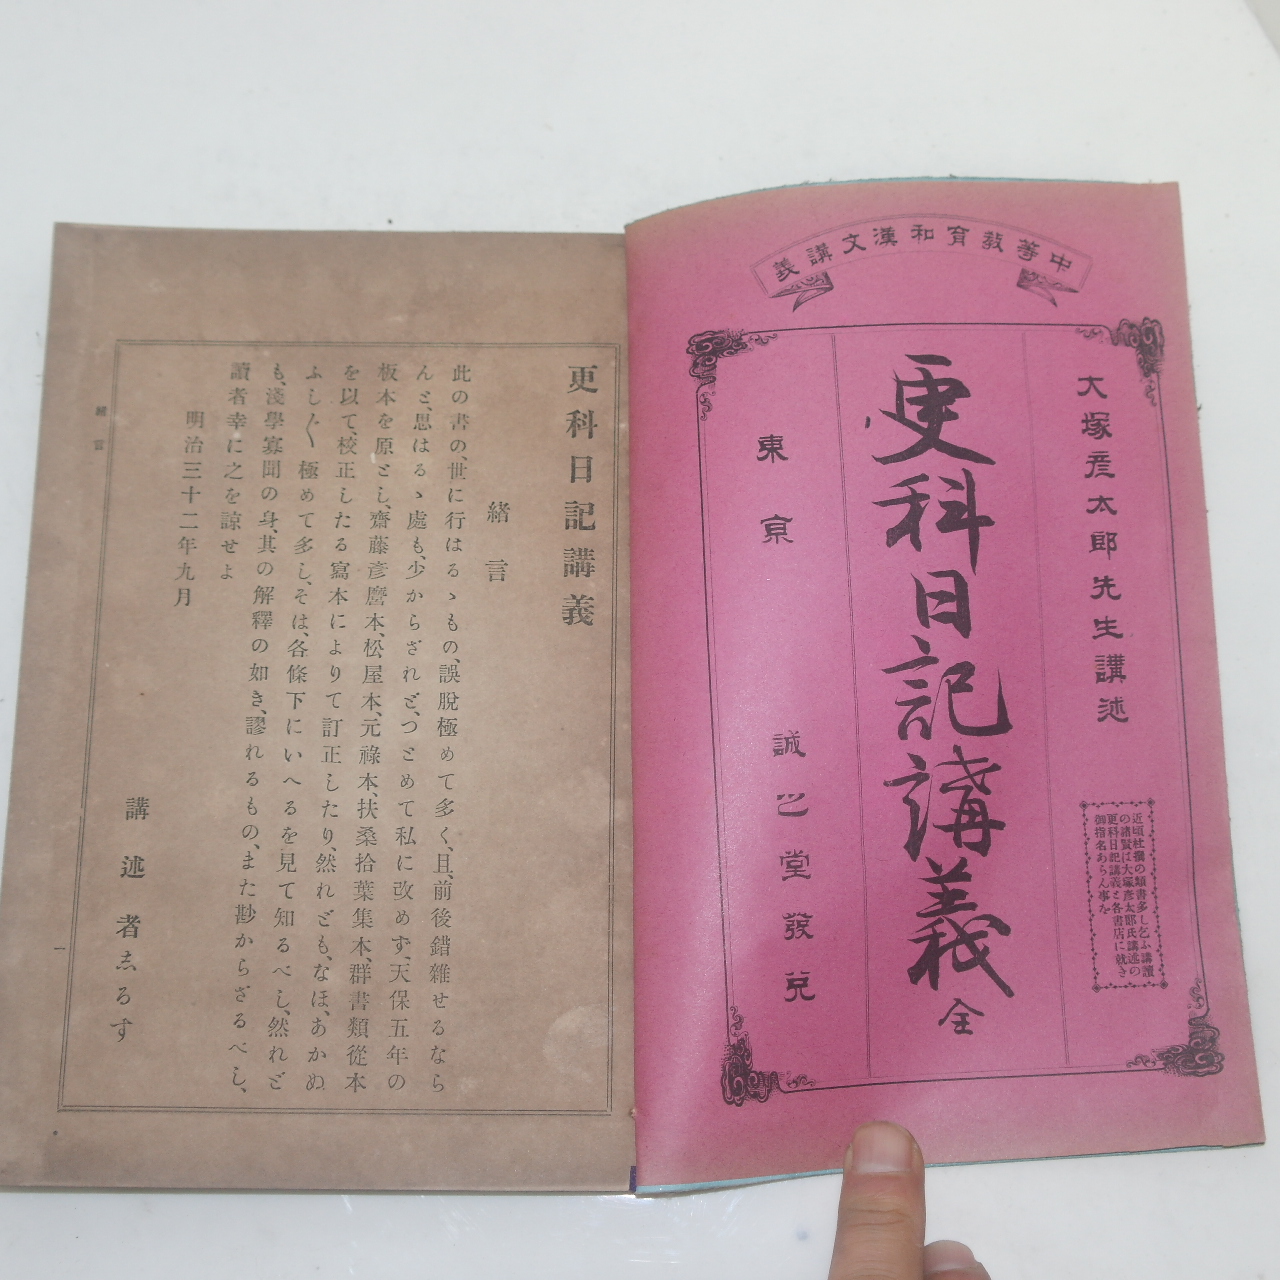 中等教育和漢文講義
大塚彦太郎先生講述
近頃杜撰の類書多し乞ふ講讀
の諸賢は大塚彦太郎氏講述の
更科日記講義と各書店に就き
御指名あらん事を
更科日記講義 全
東京 誠之堂發兌
更科日記講義
緒言
此の書の、世に行はるゝもの、誤脱極めて多く、且、前後錯雜せるなら
んと、思はるゝ處も、少からざれど、つとめて私に改めず、天保五年の
板本を原とし、齋藤彦麿本、松屋本、元祿本、扶桑拾葉集本、群書類從本
を以て、校正したる寫本によりて訂正したり、然れども、なほ、あかぬ
ふし〴〵極めて多し、そは、各條下にいへるを見て知るべし、然れど
も、淺學寡聞の身、其の解釋の如き、謬れるもの、また尠からざるべし、
讀者幸に之を諒せよ
明治三十二年九月
講述者志るす
緒言
一